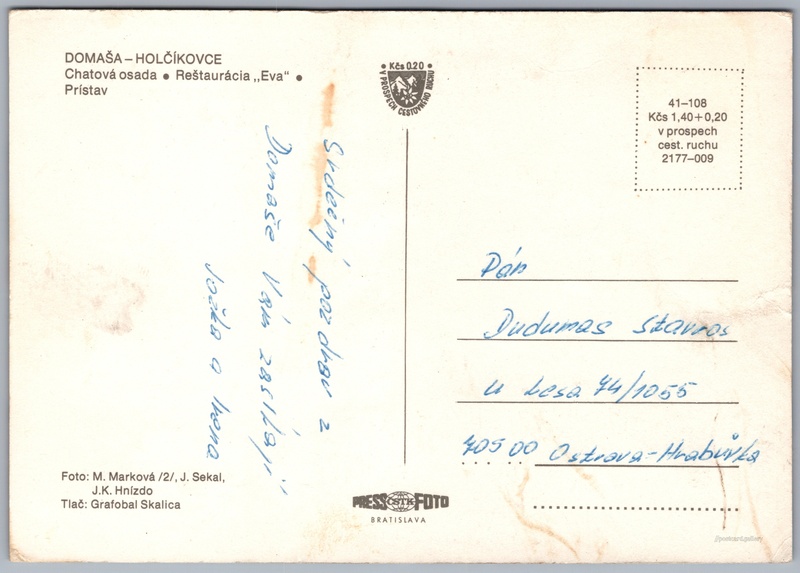 DOMAŠA – HOLČÍKOVCE
Chatová osada ● Reštaurácia „Eva“ ●
Prístav
Kčs 0.20
V PROSPECH CESTOVNÉHO RUCHU
41–108
Kčs 1,40+0,20
v prospech
cest. ruchu
2177–009
Srdečný pozdrav z
Domaše Vám zasílají
Jožka a Ivana
Pán
Dudumas Stavros
U lesa 74/1055
70500 Ostrava-Hrabůvka
Foto: M. Marková /2/, J. Sekal,
J.K. Hnízdo
Tlač: Grafobal Skalica
PRESS ČSTK FOTO
BRATISLAVA